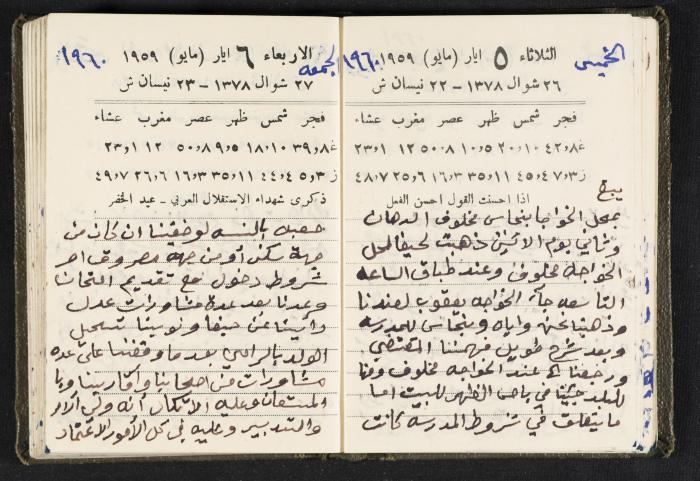 الخميس
الثلاثاء ٥ ايار (مايو) ١٩٥٩ ١٩٦٠
٢٦ شوال ١٣٧٨ – ٢٢ نيسان ش
فجر شمس ظهر عصر مغرب عشاء
غ ٨٫٤٢ ١٠٫٢٠ ٥٫١٠ ٨٫٥٠ ١٢ ١٫٢٣
ز ٣٫٧ ٤٫٤٥ ١١٫٣٥ ٣٫١٦ ٦٫٢٥ ٧٫٤٨
اذا احسنت القول احسن الفعل
بمحل الخواجا بنحاس مخلوف الدهان
وثاني يوم الاثنين ذهبت لحيفا لمحل
الخواجه مخلوف وعند طباق الساعه
التاسعه جآء الخواجه يعقوب لعندنا
وذهبنا نحن واياه وبنحاس للمدرسه
وبعد شرح طويل فهمنا المقتضى
ورجعنا الى عند الخواجه مخلوف ومنا
للبلد جينا في باص الظهر للبيت اما
ما يتعلق في شروط المدرسه كانت
الجمعه
الاربعاء ٦ ايار (مايو) ١٩٥٩ ١٩٦٠
٢٧ شوال ١٣٧٨ – ٢٣ نيسان ش
فجر شمس ظهر عصر مغرب عشاء
غ ٨٫٣٩ ١٠٫١٨ ٥٫٩ ٨٫٥٠ ١٢ ١٫٢٣
ز ٣٫٥ ٤٫٤٤ ١١٫٣٥ ٣٫١٦ ٦٫٢٦ ٧٫٤٩
ذكرى شهداء الاستقلال العربي – عيد الخضر
صعبه بالنسبه لوضعيتنا ان كان من
جهة سكن أو من جهة مصروف
شروط دخول مع تقديم امتحان
وعدنا بعد عدة مشاورات عدل
رأينا عن حيفا ونوينا تسجيل
الولد بعدما وقفنا على عده
مشاورات من اصحابنا وأقاربنا
المستعان وعليه الاتكال أنه ولي الأمر
والتدبير وعليه في كل الأمور الاعتماد